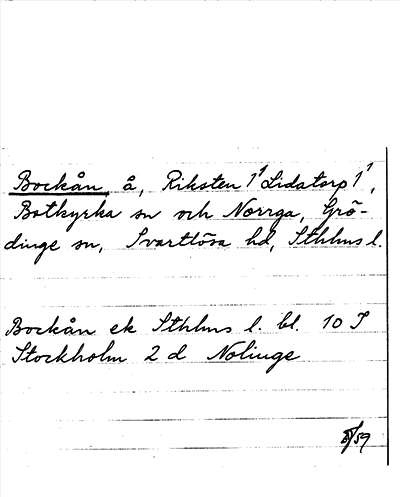 Bockån, å, Riksten 1¹ Lidatorp 1¹,
Botkyrka sn och Norrga, Grö-
dinge sn, Svartlösa hd, Sthlms l.
Bockån ek Sthlms l. bl. 10 I
Stockholm 2 d Nolinge
/59